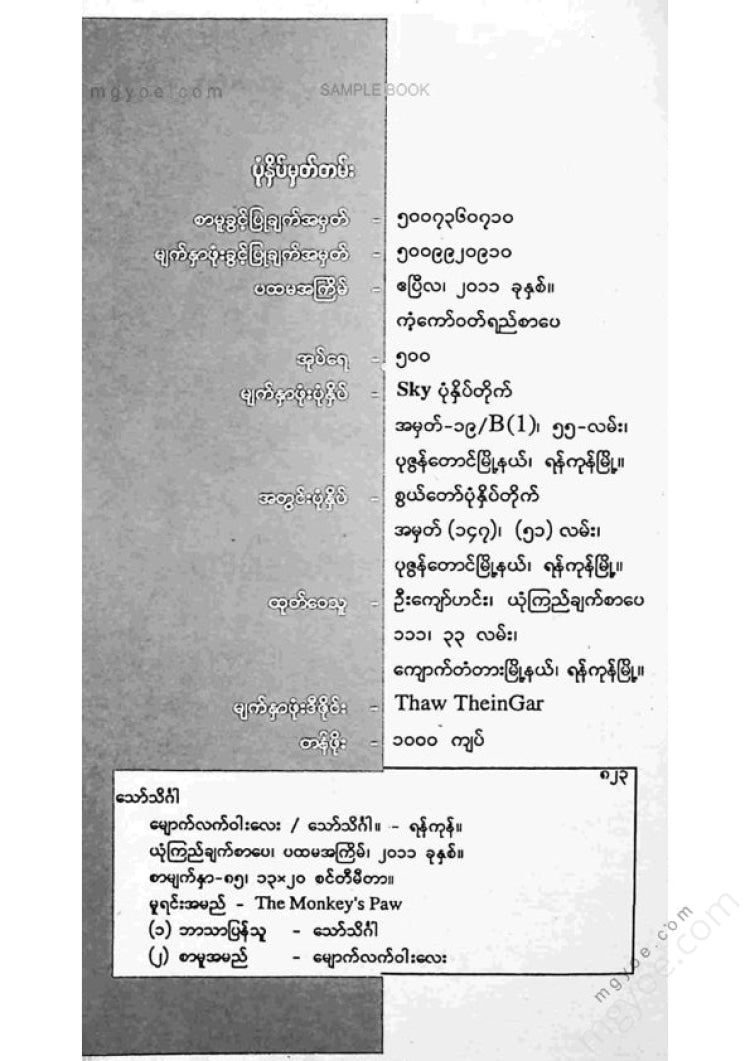 mgyoe.com
SAMPLE BOOK
ပုံနှိပ်မှတ်တမ်း
စာမူခွင့်ပြုချက်အမှတ် - ၅၀၀၇၃၆၀၇၁၀
မျက်နှာဖုံးခွင့်ပြုချက်အမှတ် - ၅၀၀၉၉၂၀၉၁၀
ပထမအကြိမ် - ဧပြီလ၊ ၂၀၁၁ ခုနှစ်။
ကံ့ကော်ဝတ်ရည်စာပေ
အုပ်ရေ - ၅၀၀
မျက်နှာဖုံးပုံနှိပ် - Sky ပုံနှိပ်တိုက်
အမှတ်-၁၉/B(1)၊ ၅၅-လမ်း၊
ပုဇွန်တောင်မြို့နယ်၊ ရန်ကုန်မြို့။
အတွင်းပုံနှိပ် - စွယ်တော်ပုံနှိပ်တိုက်
အမှတ် (၁၄၇)၊ (၅၁) လမ်း၊
ပုဇွန်တောင်မြို့နယ်၊ ရန်ကုန်မြို့။
ထုတ်ဝေသူ - ဦးကျော်ဟင်း၊ ယုံကြည်ချက်စာပေ
၁၁၁၊ ၃၃ လမ်း၊
ကျောက်တံတားမြို့နယ်၊ ရန်ကုန်မြို့။
မျက်နှာဖုံးဒီဇိုင်း - Thaw TheinGar
တန်ဖိုး - ၁၀၀၀ ကျပ်
၈၂၃
သော်သိင်္ဂါ
မျောက်လက်ဝါးလေး / သော်သိင်္ဂါ။ - ရန်ကုန်။
ယုံကြည်ချက်စာပေ၊ ပထမအကြိမ်၊ ၂၀၁၁ ခုနှစ်။
စာမျက်နှာ-၈၅၊ ၁၃×၂၀ စင်တီမီတာ။
မူရင်းအမည် - The Monkey's Paw
(၁) ဘာသာပြန်သူ - သော်သိင်္ဂါ
(၂) စာမူအမည် - မျောက်လက်ဝါးလေး
mgyoe.com
mgyoe.com